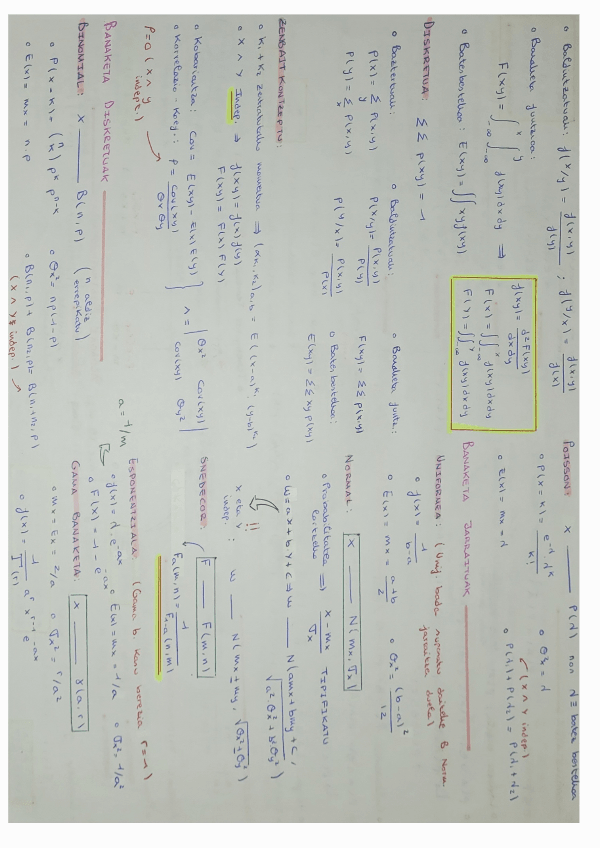 o Baldintzatuak: f(x/y) = f(x,y) / f(y) ; f(y/x) = f(x,y) / f(x)
o Banaketa funtzioa:
F(x,y) = ∫_{-∞}^{x} ∫_{-∞}^{y} f(x,y) dx dy ⟹
f(x,y) = d²F(x,y) / dx dy
F(x) = ∫∫_{-∞}^{x} f(x,y) dx dy
F(y) = ∫∫_{-∞}^{y} f(x,y) dx dy
o Batezbestekoa: E(x,y) = ∫∫ xy f(x,y)
DISKRETUA: ∑∑ P(x,y) = 1
o Bazterrekoak:
P(x) = ∑_y P(x,y)
P(y) = ∑_x P(x,y)
o Baldintzatuak:
P(x/y) = P(x,y) / P(y)
P(y/x) = P(x,y) / P(x)
o Banaketa funtz:
F(x,y) = ∑∑ P(x,y)
o Batezbestekoa:
E(x,y) = ∑∑ xy P(x,y)
ZENBAIT KONTZEPTU:
o K₁ + K₂ zentratutako momentua ⟹ (α K₁, K₂) a,b = E((x-a)^{K₁} (y-b)^{K₂})
o X ∧ Y Indep. ⟹ f(x,y) = f(x) f(y)
F(x,y) = F(x) F(y)
o Kobariantza: Cov = E(xy) - E(x)E(y)
o Korrelazio-Koef.: ρ = Cov(x,y) / σx σy
Λ = | σx² cov(x,y) |
| cov(x,y) σy² |
ρ=0 (x ∧ y
indept.)
BANAKETA DISKRETUAK
BINOMIAL: X ___ B(n,p) (n aldiz
errepikatu)
o P(x=k) = (n k) p^k q^{n-k} o σx² = np(1-p)
o E(x) = mx = n·p o B(n₁,p) + B(n₂,p) = B(n₁+n₂,p)
(x ∧ y indep.)
POISSON: X ___ P(λ) non λ = batez bestekoa
o P(x=k) = e^{-λ} λ^k / k! o σx² = λ
(x ∧ y indep.)
o E(x) = mx = λ o P(λ₁) + P(λ₂) = P(λ₁+λ₂)
BANAKETA JARRAITUAK
UNIFORMEA:
o f(x) = 1 / b-a
o E(x) = mx = a+b / 2 o σx² = (b-a)² / 12
NORMAL: X ___ N(mx, σx)
o Probabilitatea ⟹ x - mx / σx TIPIFIKATU
o W = ax + bY + c ⟹ W ___ N(amx + bmy + c, √a²σx² + b²σy²)
x eta y
indep. : W ___ N(mx ± my, √σx² ± σy²)
SNEDECOR: F ___ F(m,n)
Fα(m,n) = 1 / F_{1-α}(n,m)
ESPONENTZIALA: (Gama b kasu berezia r=1)
a = 1/m
o f(x) = a·e^{-ax} o E(x) = mx = 1/a o σx² = 1/a²
o F(x) = 1 - e^{-ax}
GAMA BANAKETA: X ___ γ(a,r)
o mx = Ex = r/a o σx² = r/a²
o f(x) = 1 / Γ(r) a^r x^{r-1} e^{-ax}